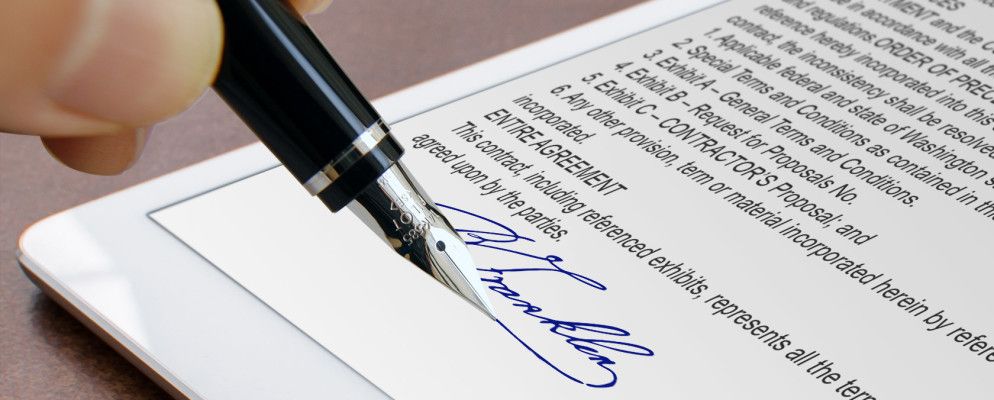 TMENT and the Co
in accordance with all
and regulations.ORDER OF PREC
reference hereby incorporated into this
contract, the inconsistency shall be resolved
1. Applicable federal and state of Washington s
2. Special Terms and Conditions as contained in
3. Exhibit A – General Terms and Conditions.
4. Exhibit B – Request for Proposals No.
5. Exhibit C – CONTRACTOR'S Proposal; and
6. Any other provision, term or material incorporated herein by refere
incorporated.
ENTIRE AGREEMENT
This contract, including referenced exhibits, represents all the term
agreed upon by the parties.
Franklin
585